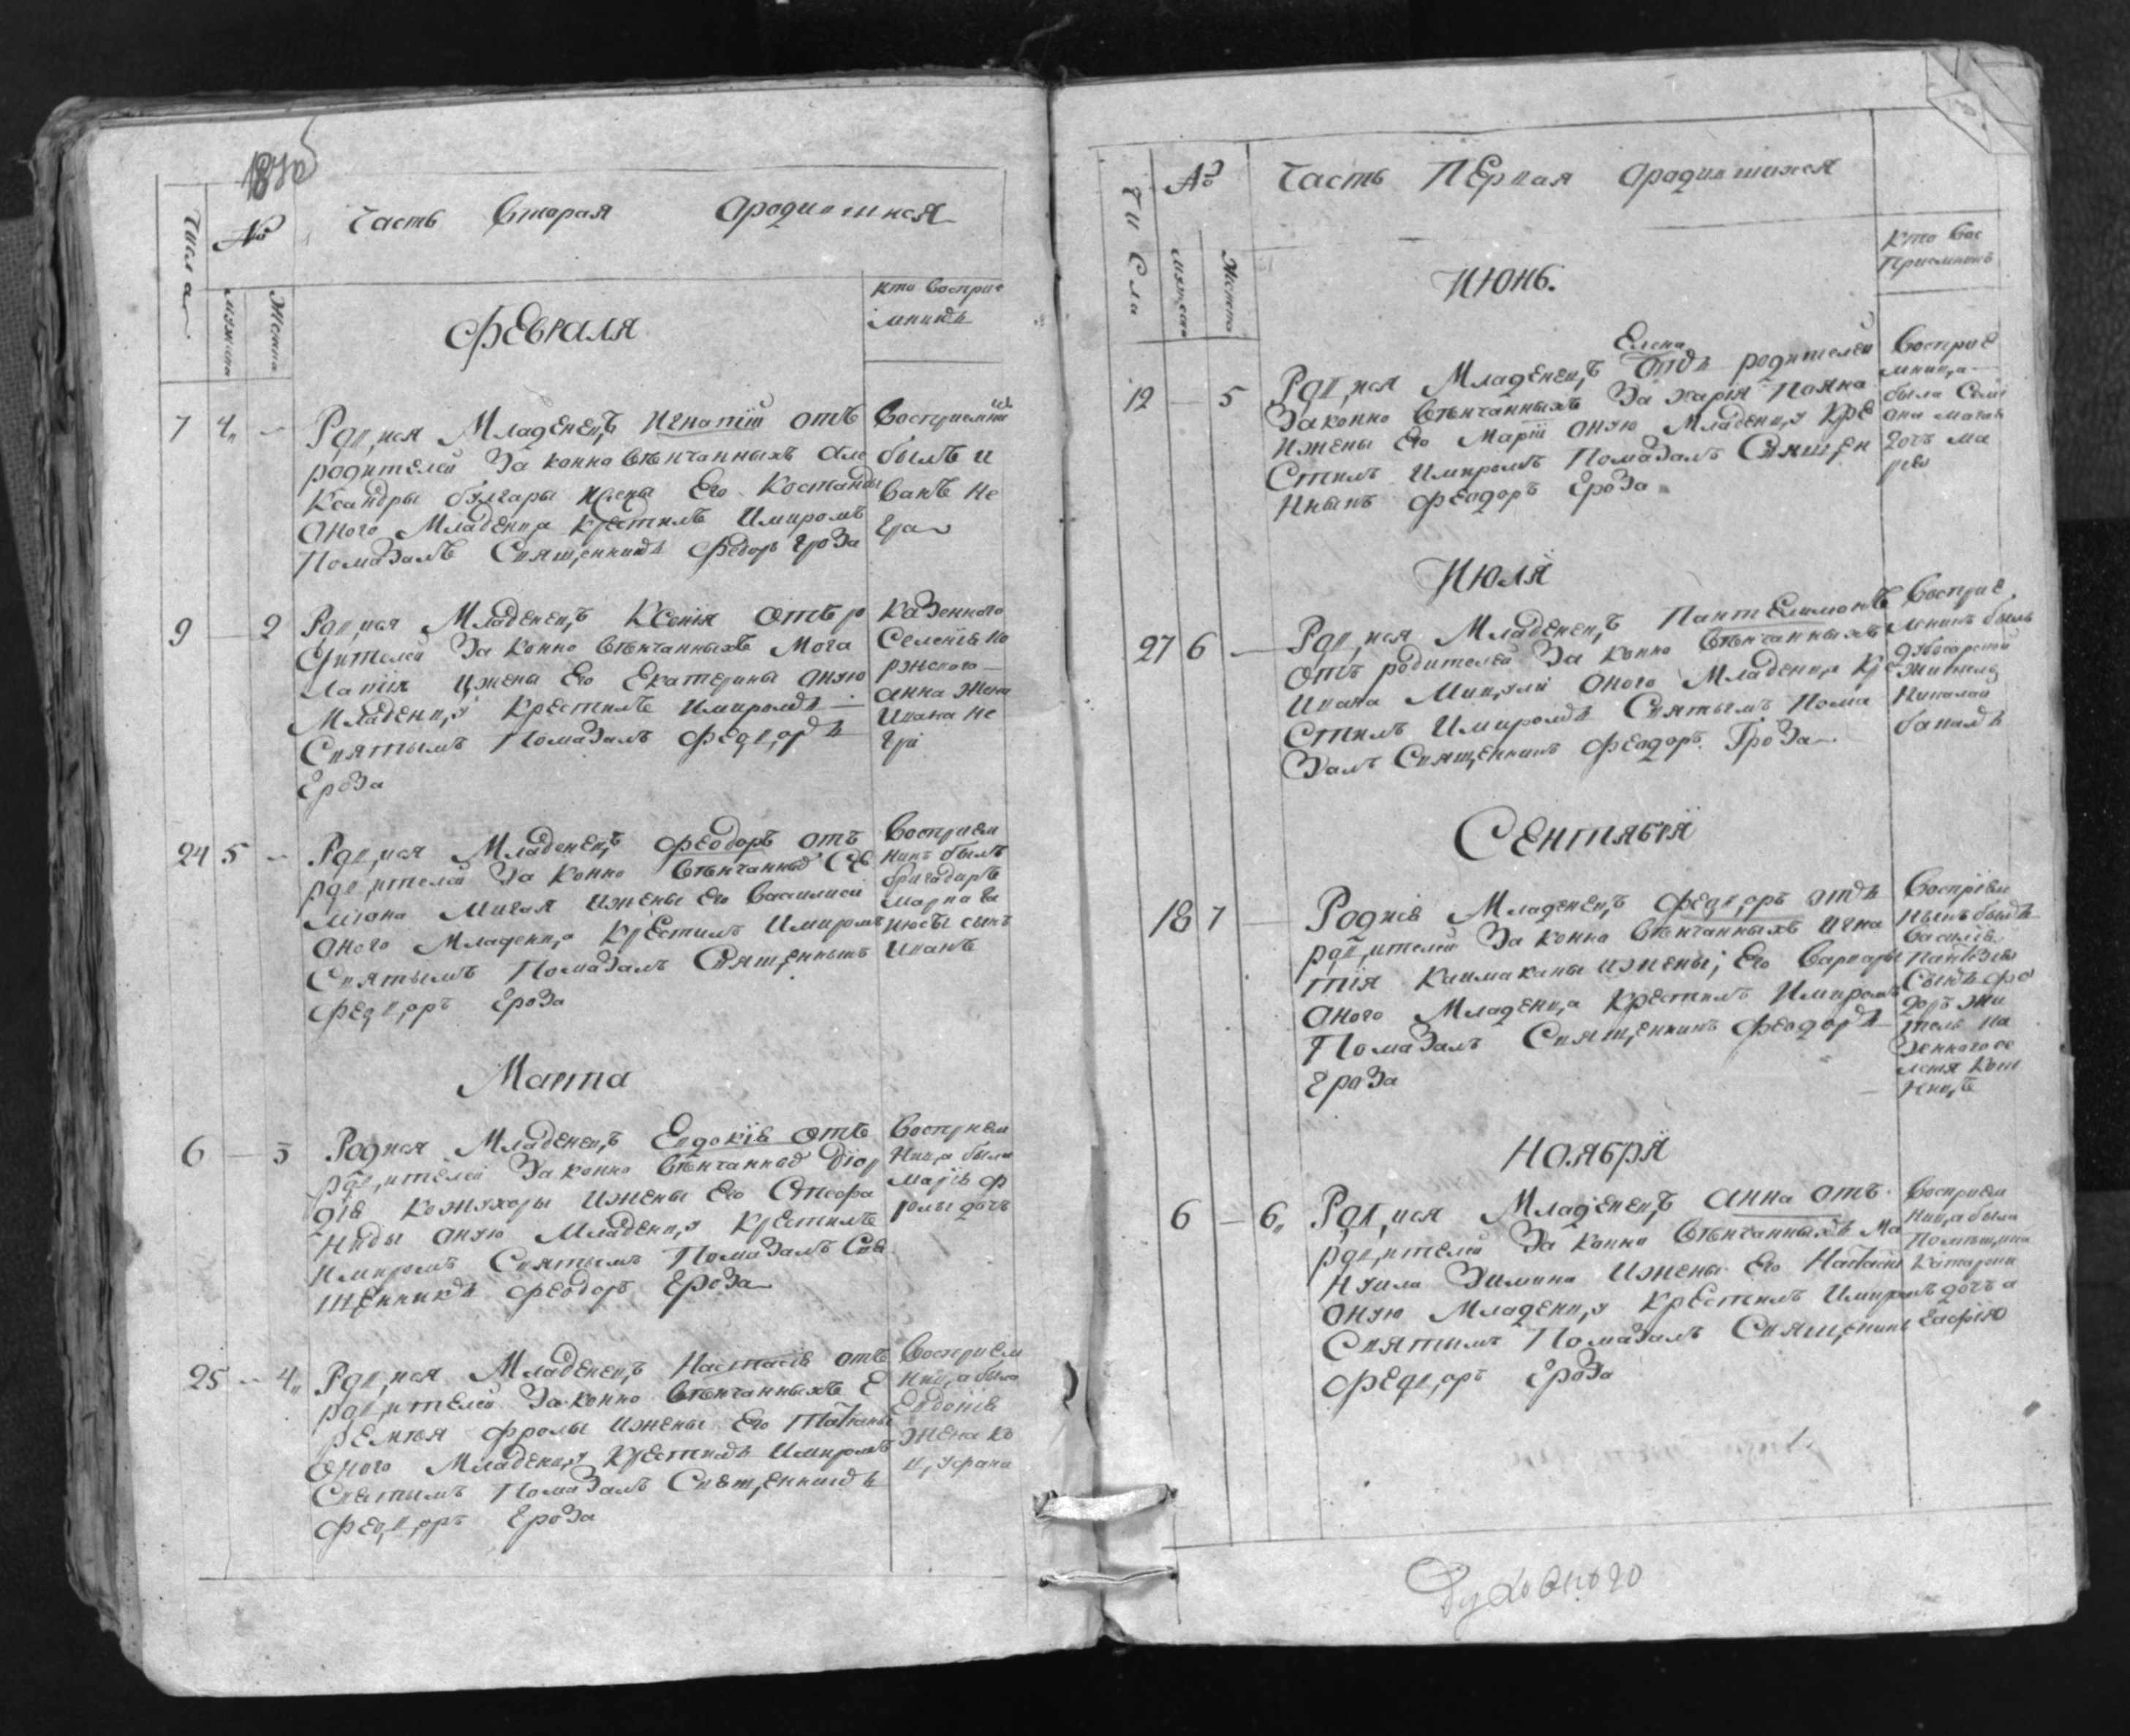 1835
Числа
№
Часть Вторая ородившихся
мужеска
Женска
кто восприе
мникъ
Февраля
7 4 Родился Младенецъ Игнатій отъ
родителей Законно венчанныхъ Але
Ксандры булгары Жены Его Костанды
оного Младенца крестилъ Имиромъ
Помазалъ Священникъ Федоръ Гроза
Восприемникъ
былъ и
ванъ Не
гра
9 2 Родился Младенецъ Ксенія отъ ро
дителей Законно венчанныхъ
Ижены Его Екатерины оную
Младенцу крестилъ Имиромъ
Святымъ Помазалъ Федоръ
Гроза
Казенного
Селенія
Анна Жена
Ивана Не
гри
24 5 Родился Младенецъ Феодоръ отъ
родителей Законно венчанных Си
міона Ижены Его Василиси
оного Младенца Крестилъ Имиромъ
Святымъ Помазалъ Священникъ
Федоръ Гроза
Восприем
никъ былъ
бригадиръ
сынъ
Иванъ
Марта
6 3 Родился Младенецъ Евдокія отъ
родителей Законно венчанных Геор
гія Кожухоры Ижены Его Стефа
ниды оную Младенцу Крестилъ
Имиромъ Святымъ Помазалъ Свя
щенникъ Феодоръ Гроза
Восприем
ница была
Марія Ф
ролы дочъ
25 4 Родился Младенецъ Настасія отъ
родителей Законно венчанныхъ Е
ремея Фролы Ижены Его Татіаны
оного Младенцу Крестилъ Имиромъ
Святымъ Помазалъ Священникъ
Федоръ Гроза
Восприем
ница была
Евдокія
Жена Ко
цуфана
Числа
№
Часть Первая ородившихся
мужеска
Женска
Кто Вос
Приемникъ
Июнь.
Елена
12 5 Родился Младенецъ отъ родителей
Законно венчанныхъ Захарія Пояна
Ижены Его Маріи оную Младенцу Кре
Стилъ Имиромъ Помазалъ Священ
Никъ Феодоръ Гроза
Восприе
мница
была Сими
она
дочъ Ма
рія
Июля
27 6 Родился Младенецъ Пантелимонъ
отъ родителей Законно венчанныхъ
Ивана оного Младенца Кре
Стилъ Имиромъ Святымъ Пома
залъ Священникъ Феодоръ Гроза
Восприе
мникъ былъ
Житель
Николай
Сентября
18 7 Родися Младенецъ Федоръ отъ
родителей Законно венчанныхъ Игна
тія Каимаканы ижены Его Варвары
оного Младенца Крестилъ Имиромъ
Помазалъ Священникъ Феодоръ
Гроза
Восприем
никъ былъ
Василія
Сынъ Фео
доръ Жи
тель Ка
зенного се
ленія
Ноября
6 6 Родился Младенецъ Анна отъ
родителей Законно венчанныхъ Ма
Ижены Его Наталіи
оную Младенцу Крестилъ Имиромъ
Святымъ Помазалъ Священникъ
Федоръ Гроза
Восприем
ница была
Помещика
дочъ
Духовного